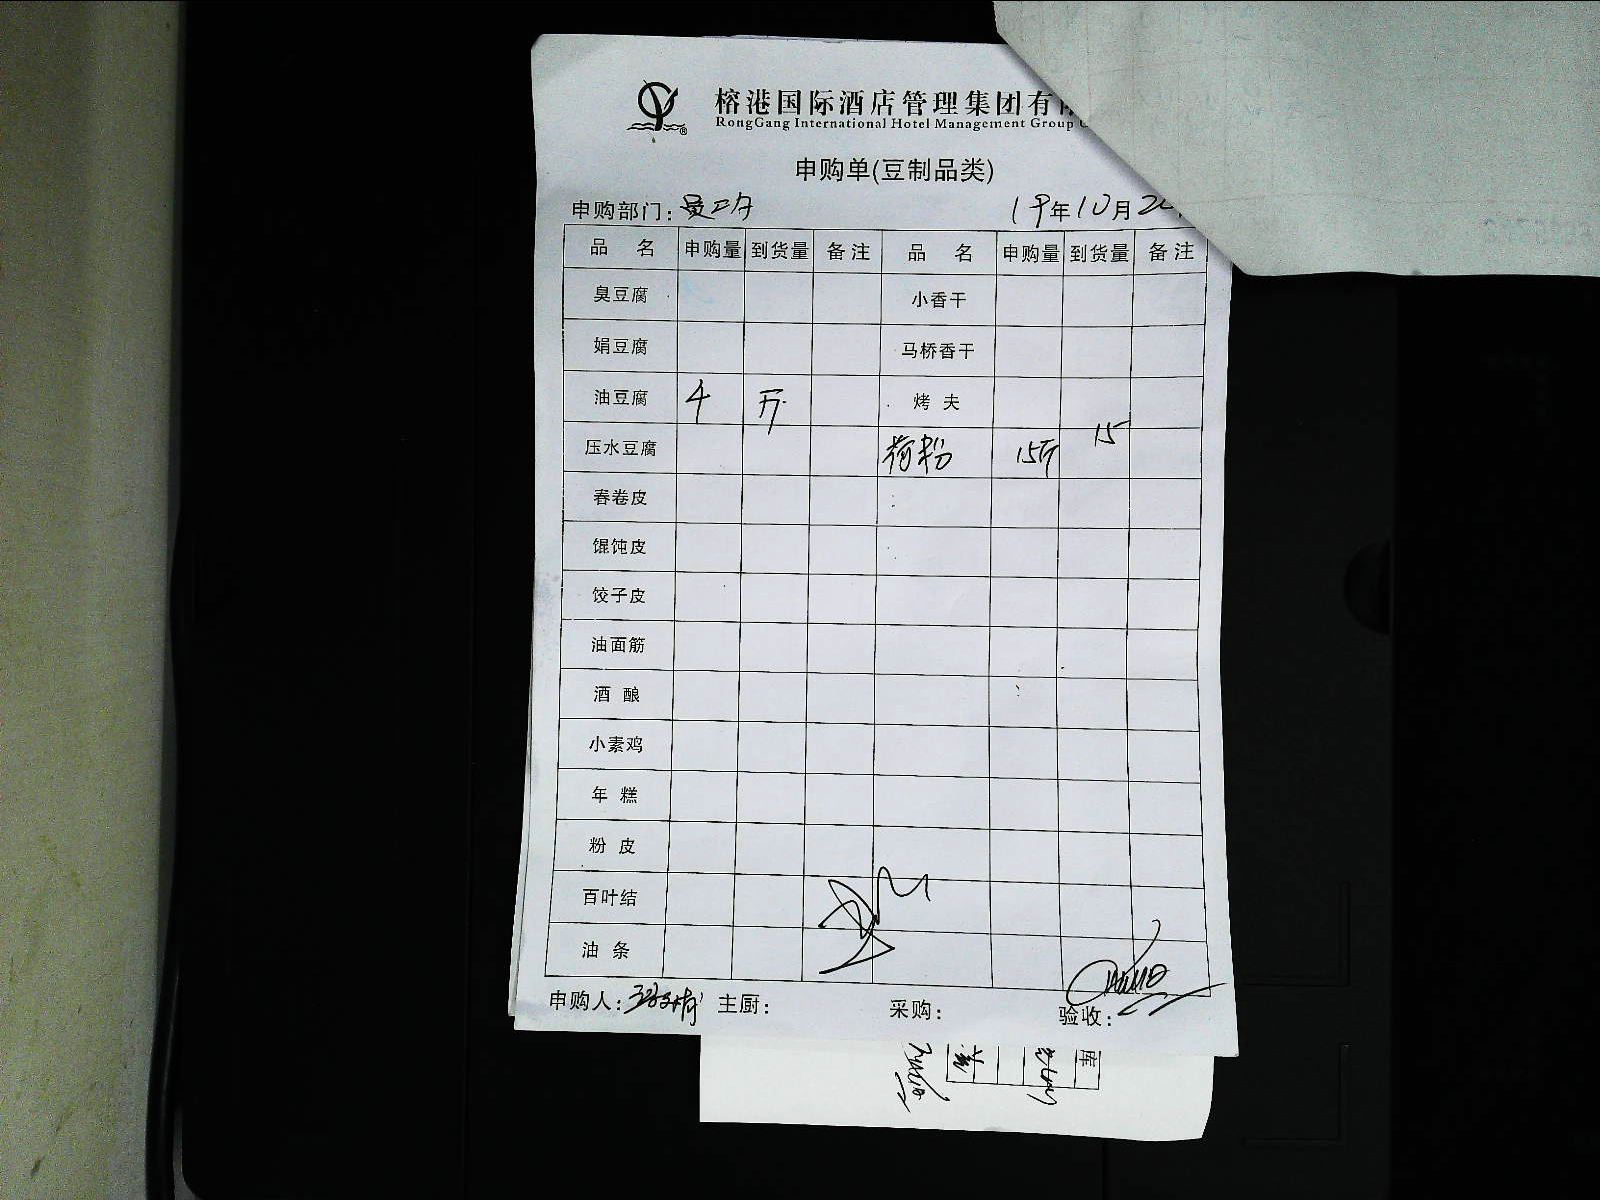 榕港国际酒店管理集团有
RongGang International Hotel Management Group
申购单(豆制品类)
申购部门:员工
19年10月
品 名 申购量 到货量 备注 品 名 申购量 到货量 备注
臭豆腐 小香干
娟豆腐 马桥香干
油豆腐 4 斤 烤夫
压水豆腐 粉 15斤 15
春卷皮
馄饨皮
饺子皮
油面筋
酒酿
小素鸡
年糕
粉皮
百叶结
油条
申购人: 主厨: 采购: 验收:
库